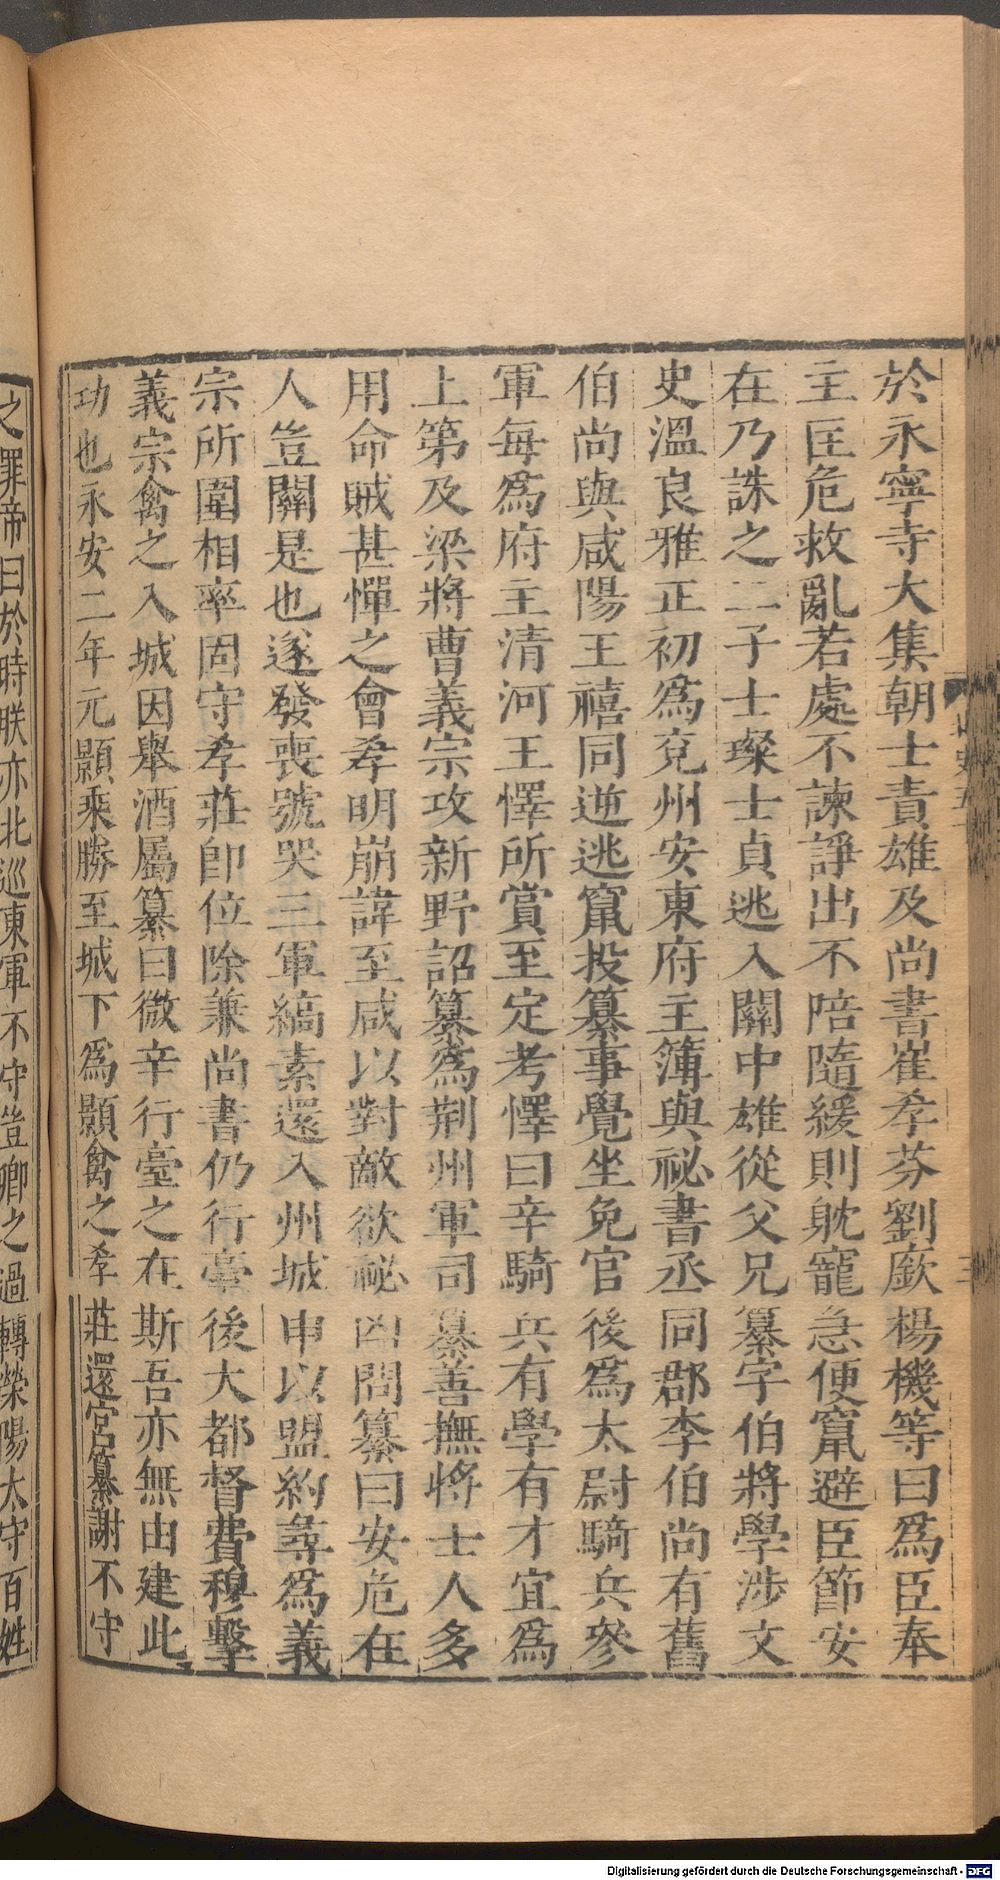 於永寧寺大集朝士責雄及尚書崔孝芬劉廞楊機等曰爲臣奉
主匡危救亂若處不諫諍出不陪隨緩則躭寵急便竄避臣節安
在乃誅之二子士璨士貞逃入關中雄從父兄纂字伯將學涉文
史溫良雅正初爲兗州安東府主簿與祕書丞同郡李伯尚有舊
伯尚與咸陽王禧同逆逃竄投纂事覺坐免官後爲太尉騎兵參
軍每爲府主清河王懌所賞至定考懌曰辛騎兵有學有才宜爲
上第及梁將曹義宗攻新野詔纂爲荆州軍司纂善撫將士人多
用命賊甚憚之會孝明崩諱至咸以對敵欲祕凶問纂曰安危在
人豈關是也遂發喪號哭三軍縞素還入州城申以盟約尋爲義
宗所圍相率固守孝莊卽位除兼尚書仍行臺後大都督費穆擊
義宗禽之入城因舉酒屬纂曰微辛行臺之在斯吾亦無由建此
功也永安二年元顥乘勝至城下爲顥禽之孝莊還宮纂謝不守
之罪帝曰於時朕亦北巡東軍不守豈卿之過轉榮陽太守百姓
Digitalisierung gefördert durch die Deutsche Forschungsgemeinschaft - DFG